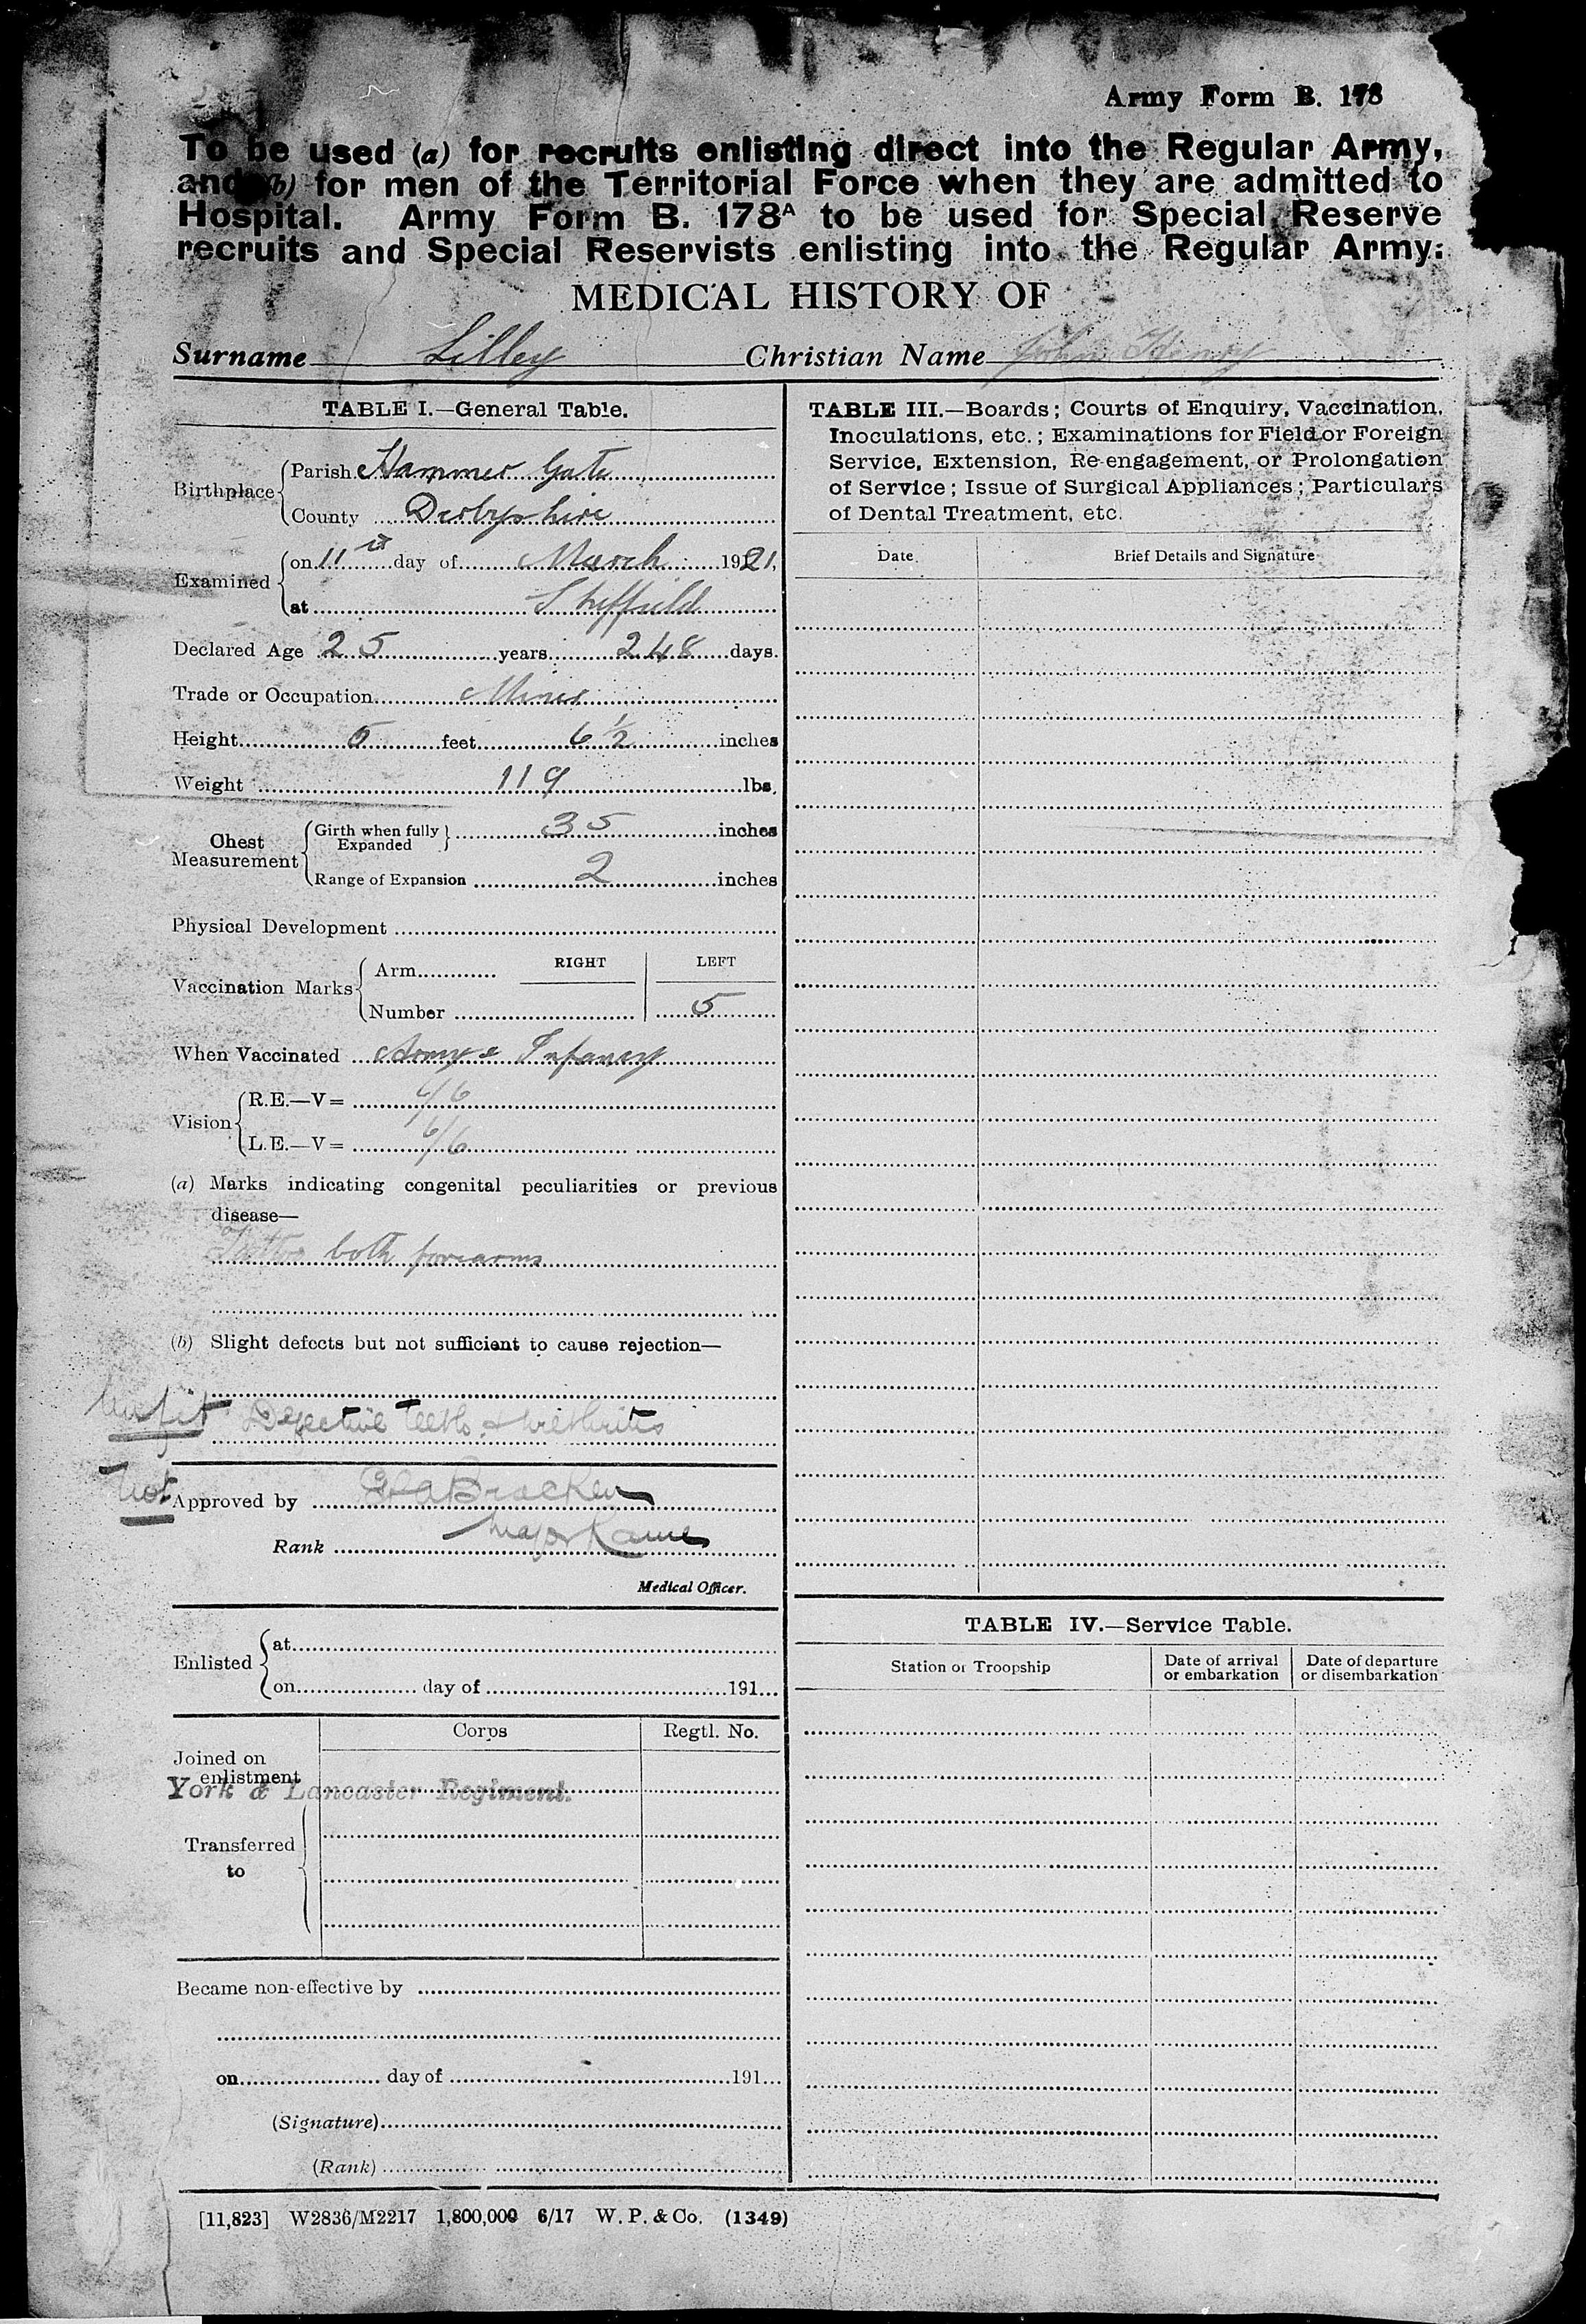 Army Form B. 178
To be used (a) for recruits enlisting direct into the Regular Army,
and (b) for men of the Territorial Force when they are admitted to
Hospital. Army Form B. 178A to be used for Special Reserve
recruits and Special Reservists enlisting into the Regular Army.
MEDICAL HISTORY OF
Surname Lilley Christian Name John Henry
TABLE I.—General Table.
Birthplace
Parish Hammer Gate
County Derbyshire
Examined
on 11th day of March 1921,
at Sheffield
Declared Age 25 years 248 days.
Trade or Occupation Miner
Height 5 feet 6 1/2 inches
Weight 119 lbs.
Chest Measurement
Girth when fully Expanded 35 inches
Range of Expansion 2 inches
Physical Development
Vaccination Marks
Arm RIGHT LEFT
Number 5
When Vaccinated Army & Infancy
Vision
R.E.—V= 6/6
L.E.—V= 6/6
(a) Marks indicating congenital peculiarities or previous
disease—
Tattoo both forearms
(b) Slight defects but not sufficient to cause rejection—
Unfit Defective teeth & urethritis
Not Approved by Bracken
Rank Major
Medical Officer.
Enlisted
at
on day of 191
Corps Regtl. No.
Joined on
enlistment
York & Lancaster Regiment.
Transferred
to
Became non-effective by
on day of 191
(Signature)
(Rank)
[11,823] W2836/M2217 1,800,000 6/17 W. P. & Co. (1349)
TABLE III.—Boards; Courts of Enquiry, Vaccination,
Inoculations, etc.; Examinations for Field or Foreign
Service, Extension, Re-engagement, or Prolongation
of Service; Issue of Surgical Appliances; Particulars
of Dental Treatment, etc.
Date. Brief Details and Signature
TABLE IV.—Service Table.
Station or Troopship
Date of arrival
or embarkation
Date of departure
or disembarkation